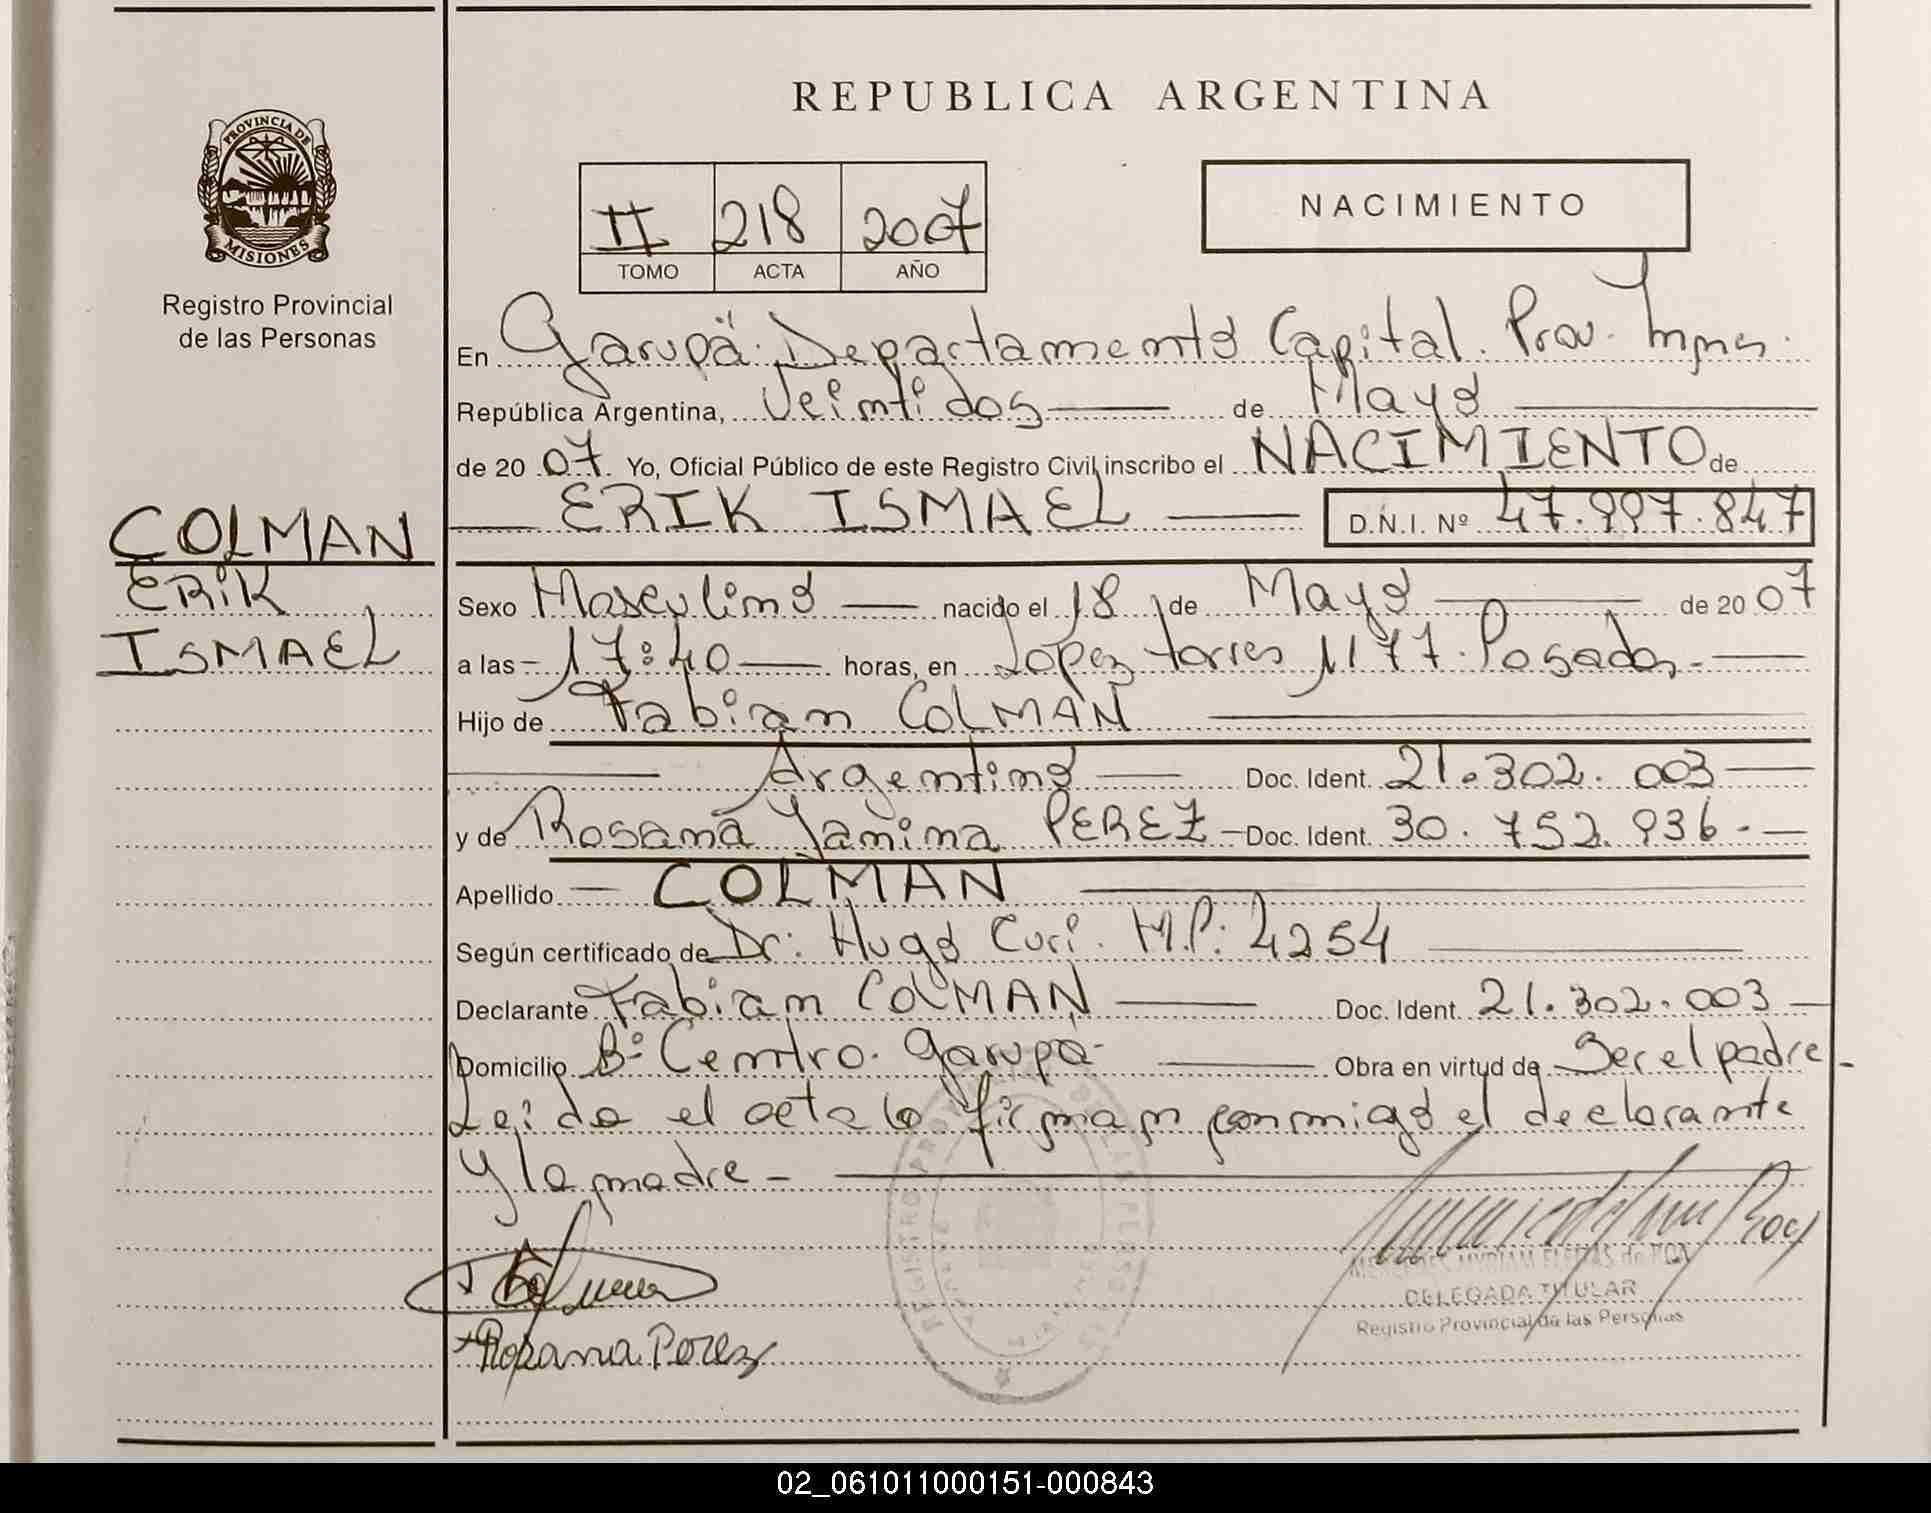 PROVINCIA DE
MISIONES
Registro Provincial
de las Personas
COLMAN
ERiK
ISMAEL
REPUBLICA ARGENTINA
II 218 2007
TOMO ACTA AÑO
NACIMIENTO
En Garupá. Departamento Capital. Prov. Mnes.
República Argentina, Veintidos de Mayo
de 20 07. Yo, Oficial Público de este Registro Civil inscribo el NACIMIENTO de
ERIK ISMAEL D.N.I. Nº 47.997.847
Sexo Masculino nacido el 18 de Mayo de 20 07
a las 17:40 horas, en Lopez torres 1177. Posadas.
Hijo de Fabian COLMAN
Argentino Doc. Ident. 21.302.003
y de Rosana Yanina PEREZ Doc. Ident. 30.752.936.
Apellido COLMAN
Según certificado de Dr: Hugo Curi. M.P: 4254
Declarante Fabian COLMAN Doc. Ident. 21.302.003
Domicilio Bº Centro. Garupá Obra en virtud de Ser el padre-
Leida el acta la firman conmigo el declarante
y la madre-
Rosana Perez
DELEGADA TITULAR
Registro Provincial de las Personas
REGISTRO PROVINCIAL DE LAS PERSONAS
02_061011000151-000843